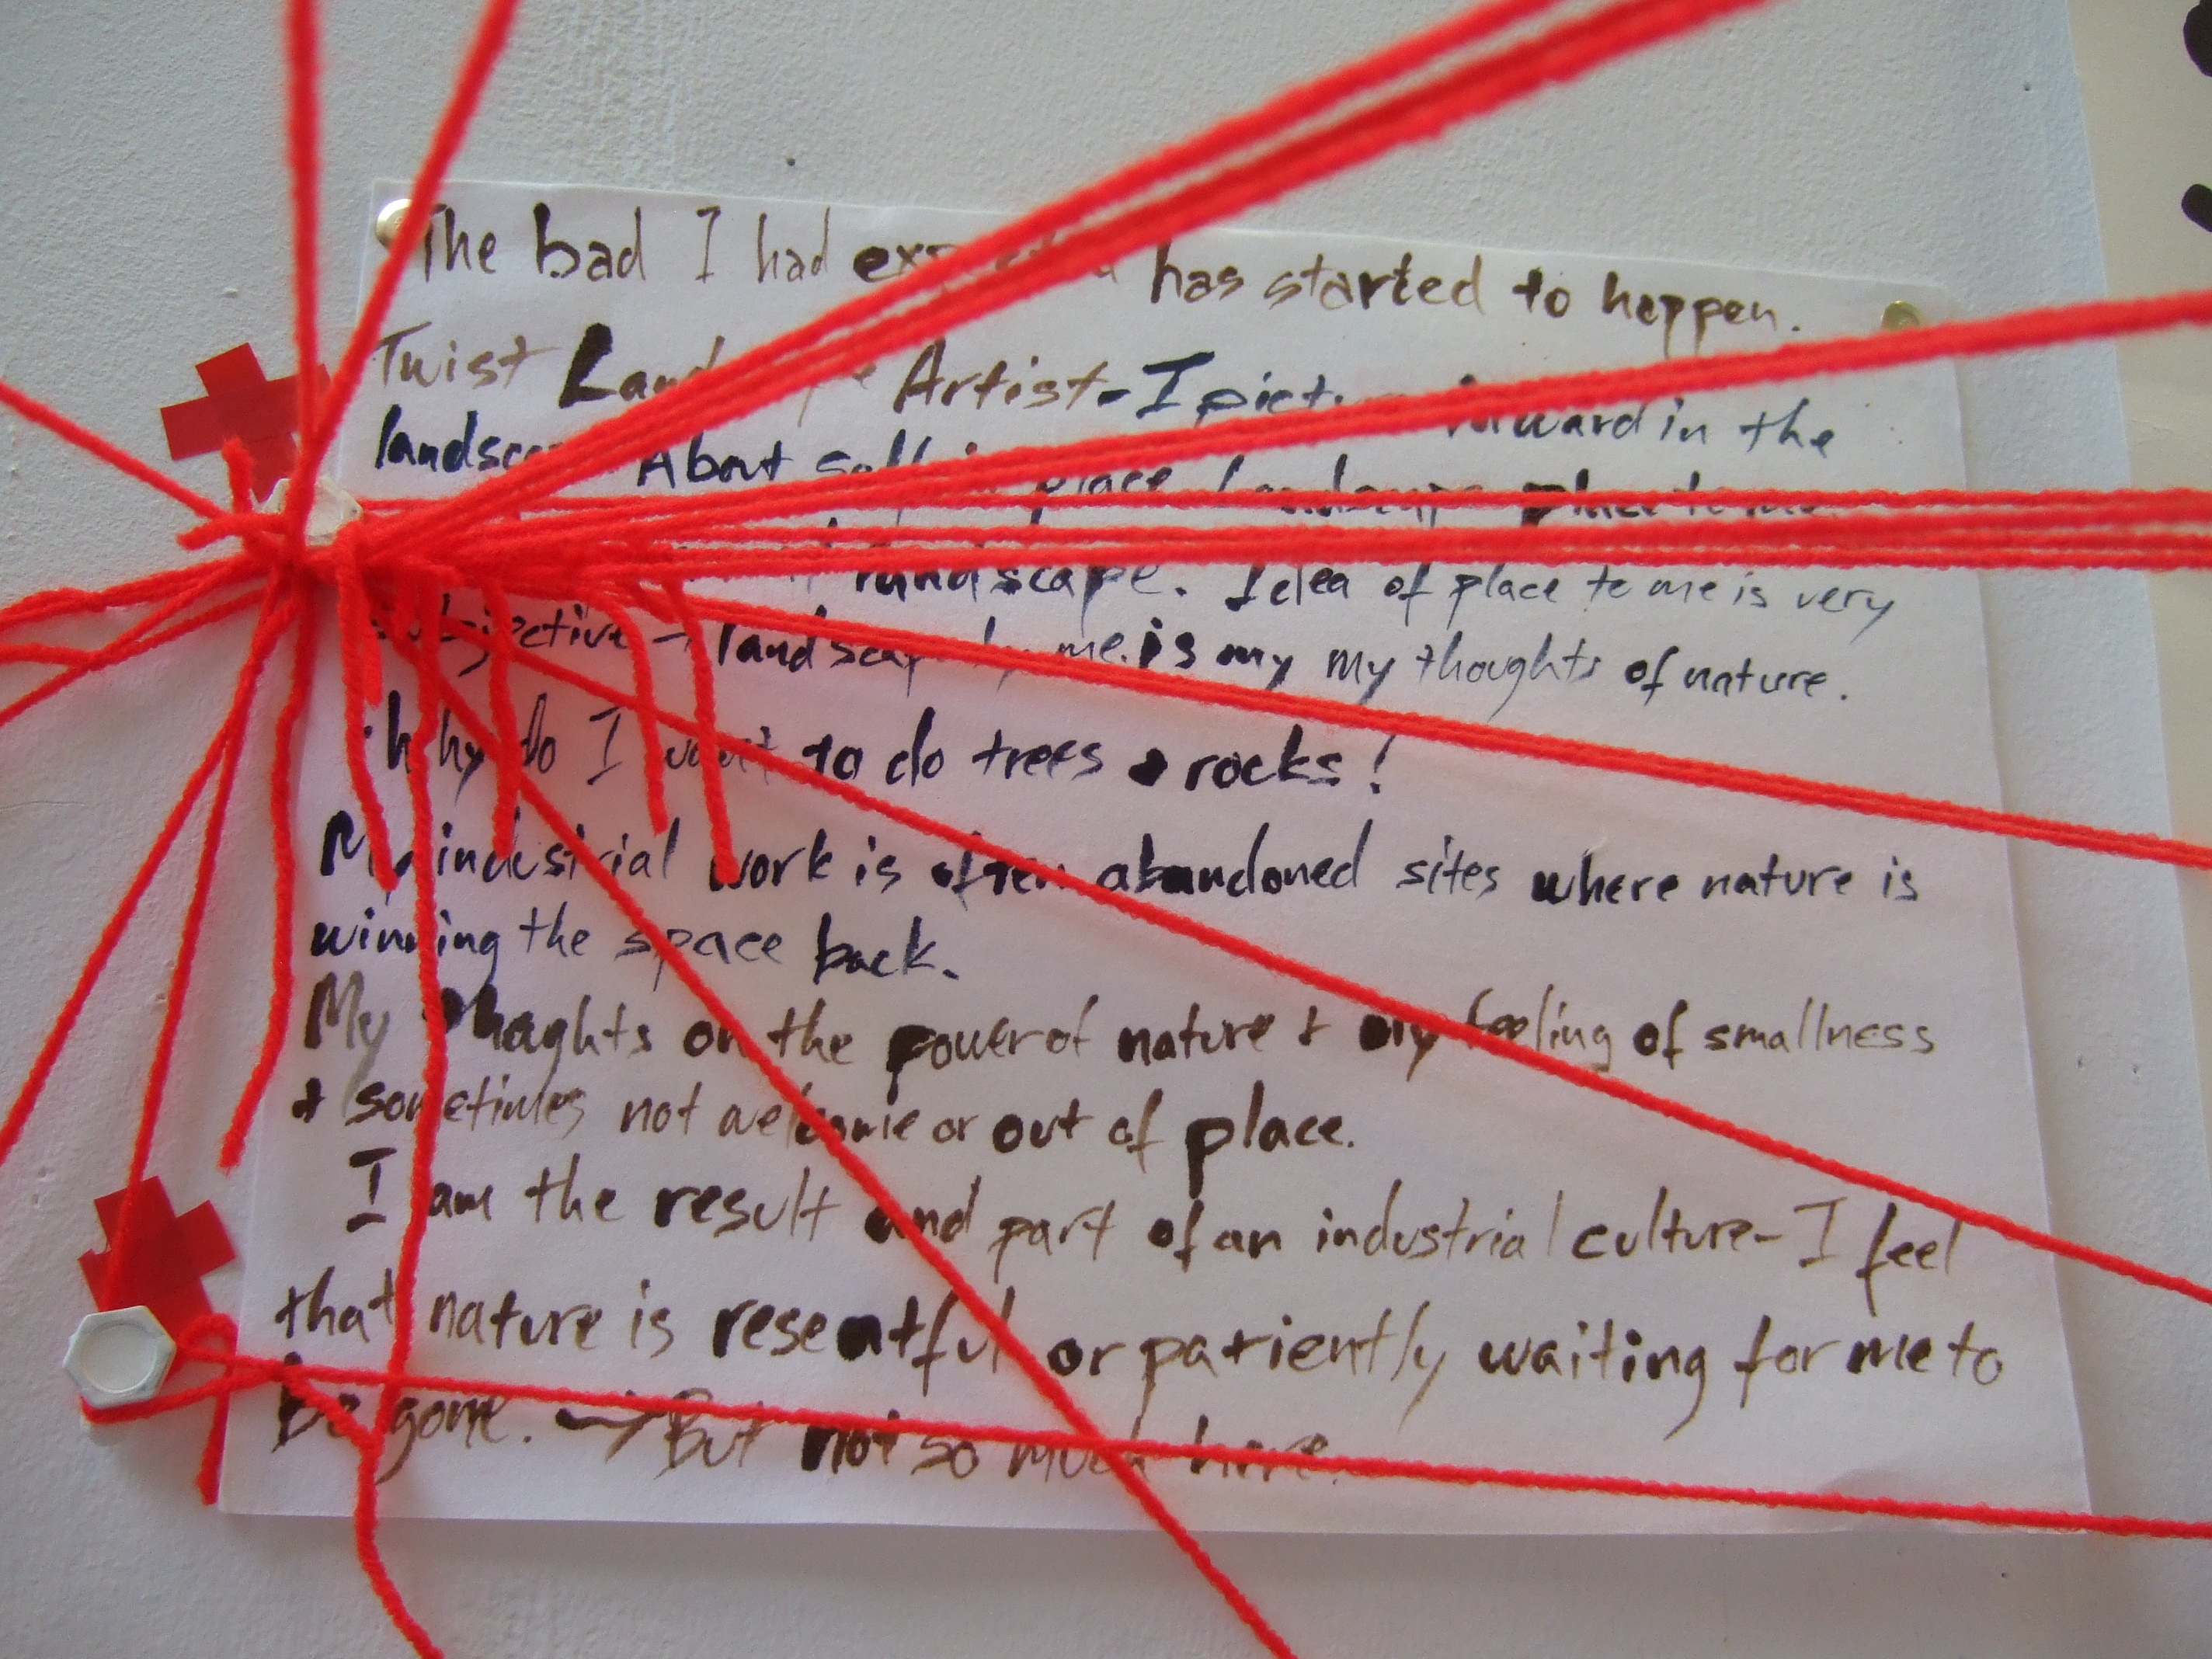 The bad I had has started to happen.
Twist Artist - I forward in the
landscape About self in place Landscape place to me
landscape. Idea of place to me is very
subjective → landscape by me. is my my thoughts of nature.
Why do I want to do trees + rocks!
My industrial work is often abandoned sites where nature is
winning the space back.
My thaghts on the power of nature + my feeling of smallness
+ sometimes not welcome or out of place.
I am the result and part of an industrial culture - I feel
that nature is resentful or patiently waiting for me to
be gone. → But not so much here.